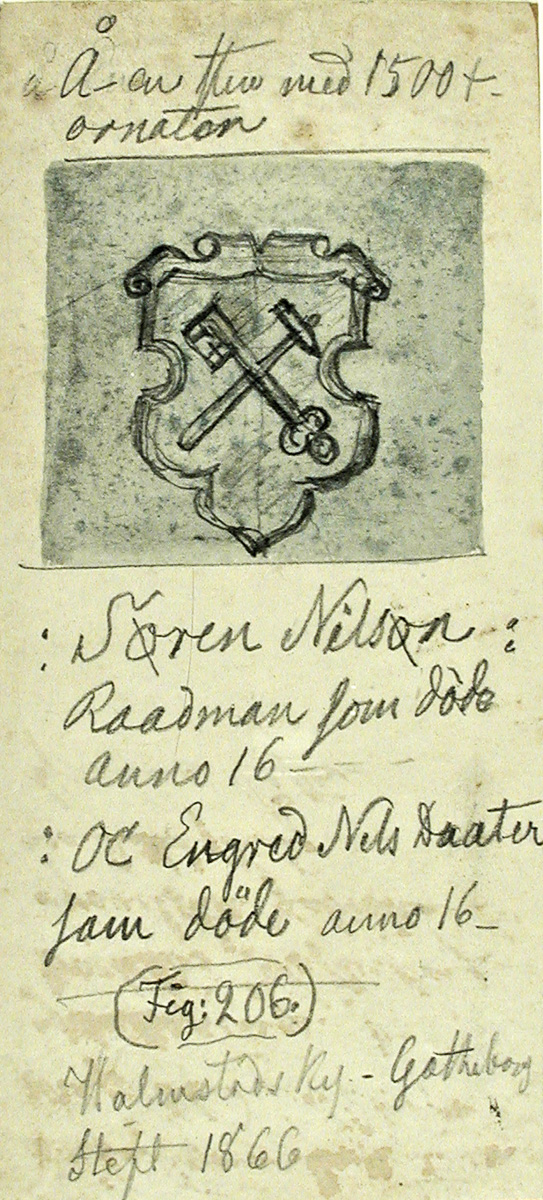 Å en sten med 1500 t.
ornaten
: Søren Nilsøn :
Raadman som döde
anno 16 —
: OC Engred Nils Daater
som döde anno 16 –
(Fig: 206.)
Halmstads Ky. - Götheborg
Stift 1866